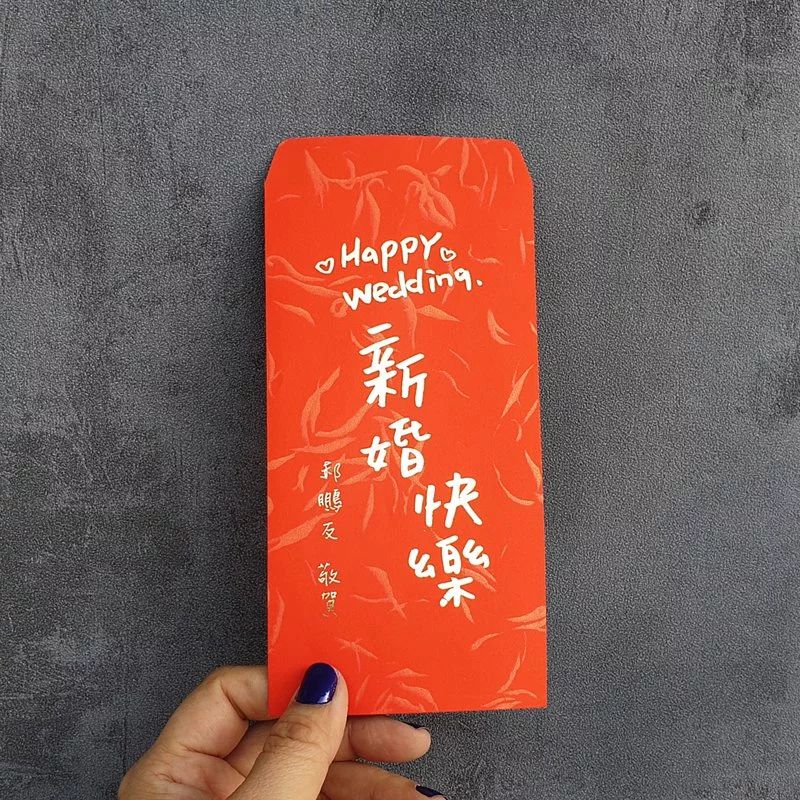 Happy
wedding.
新婚快樂
郝鵬友 敬賀